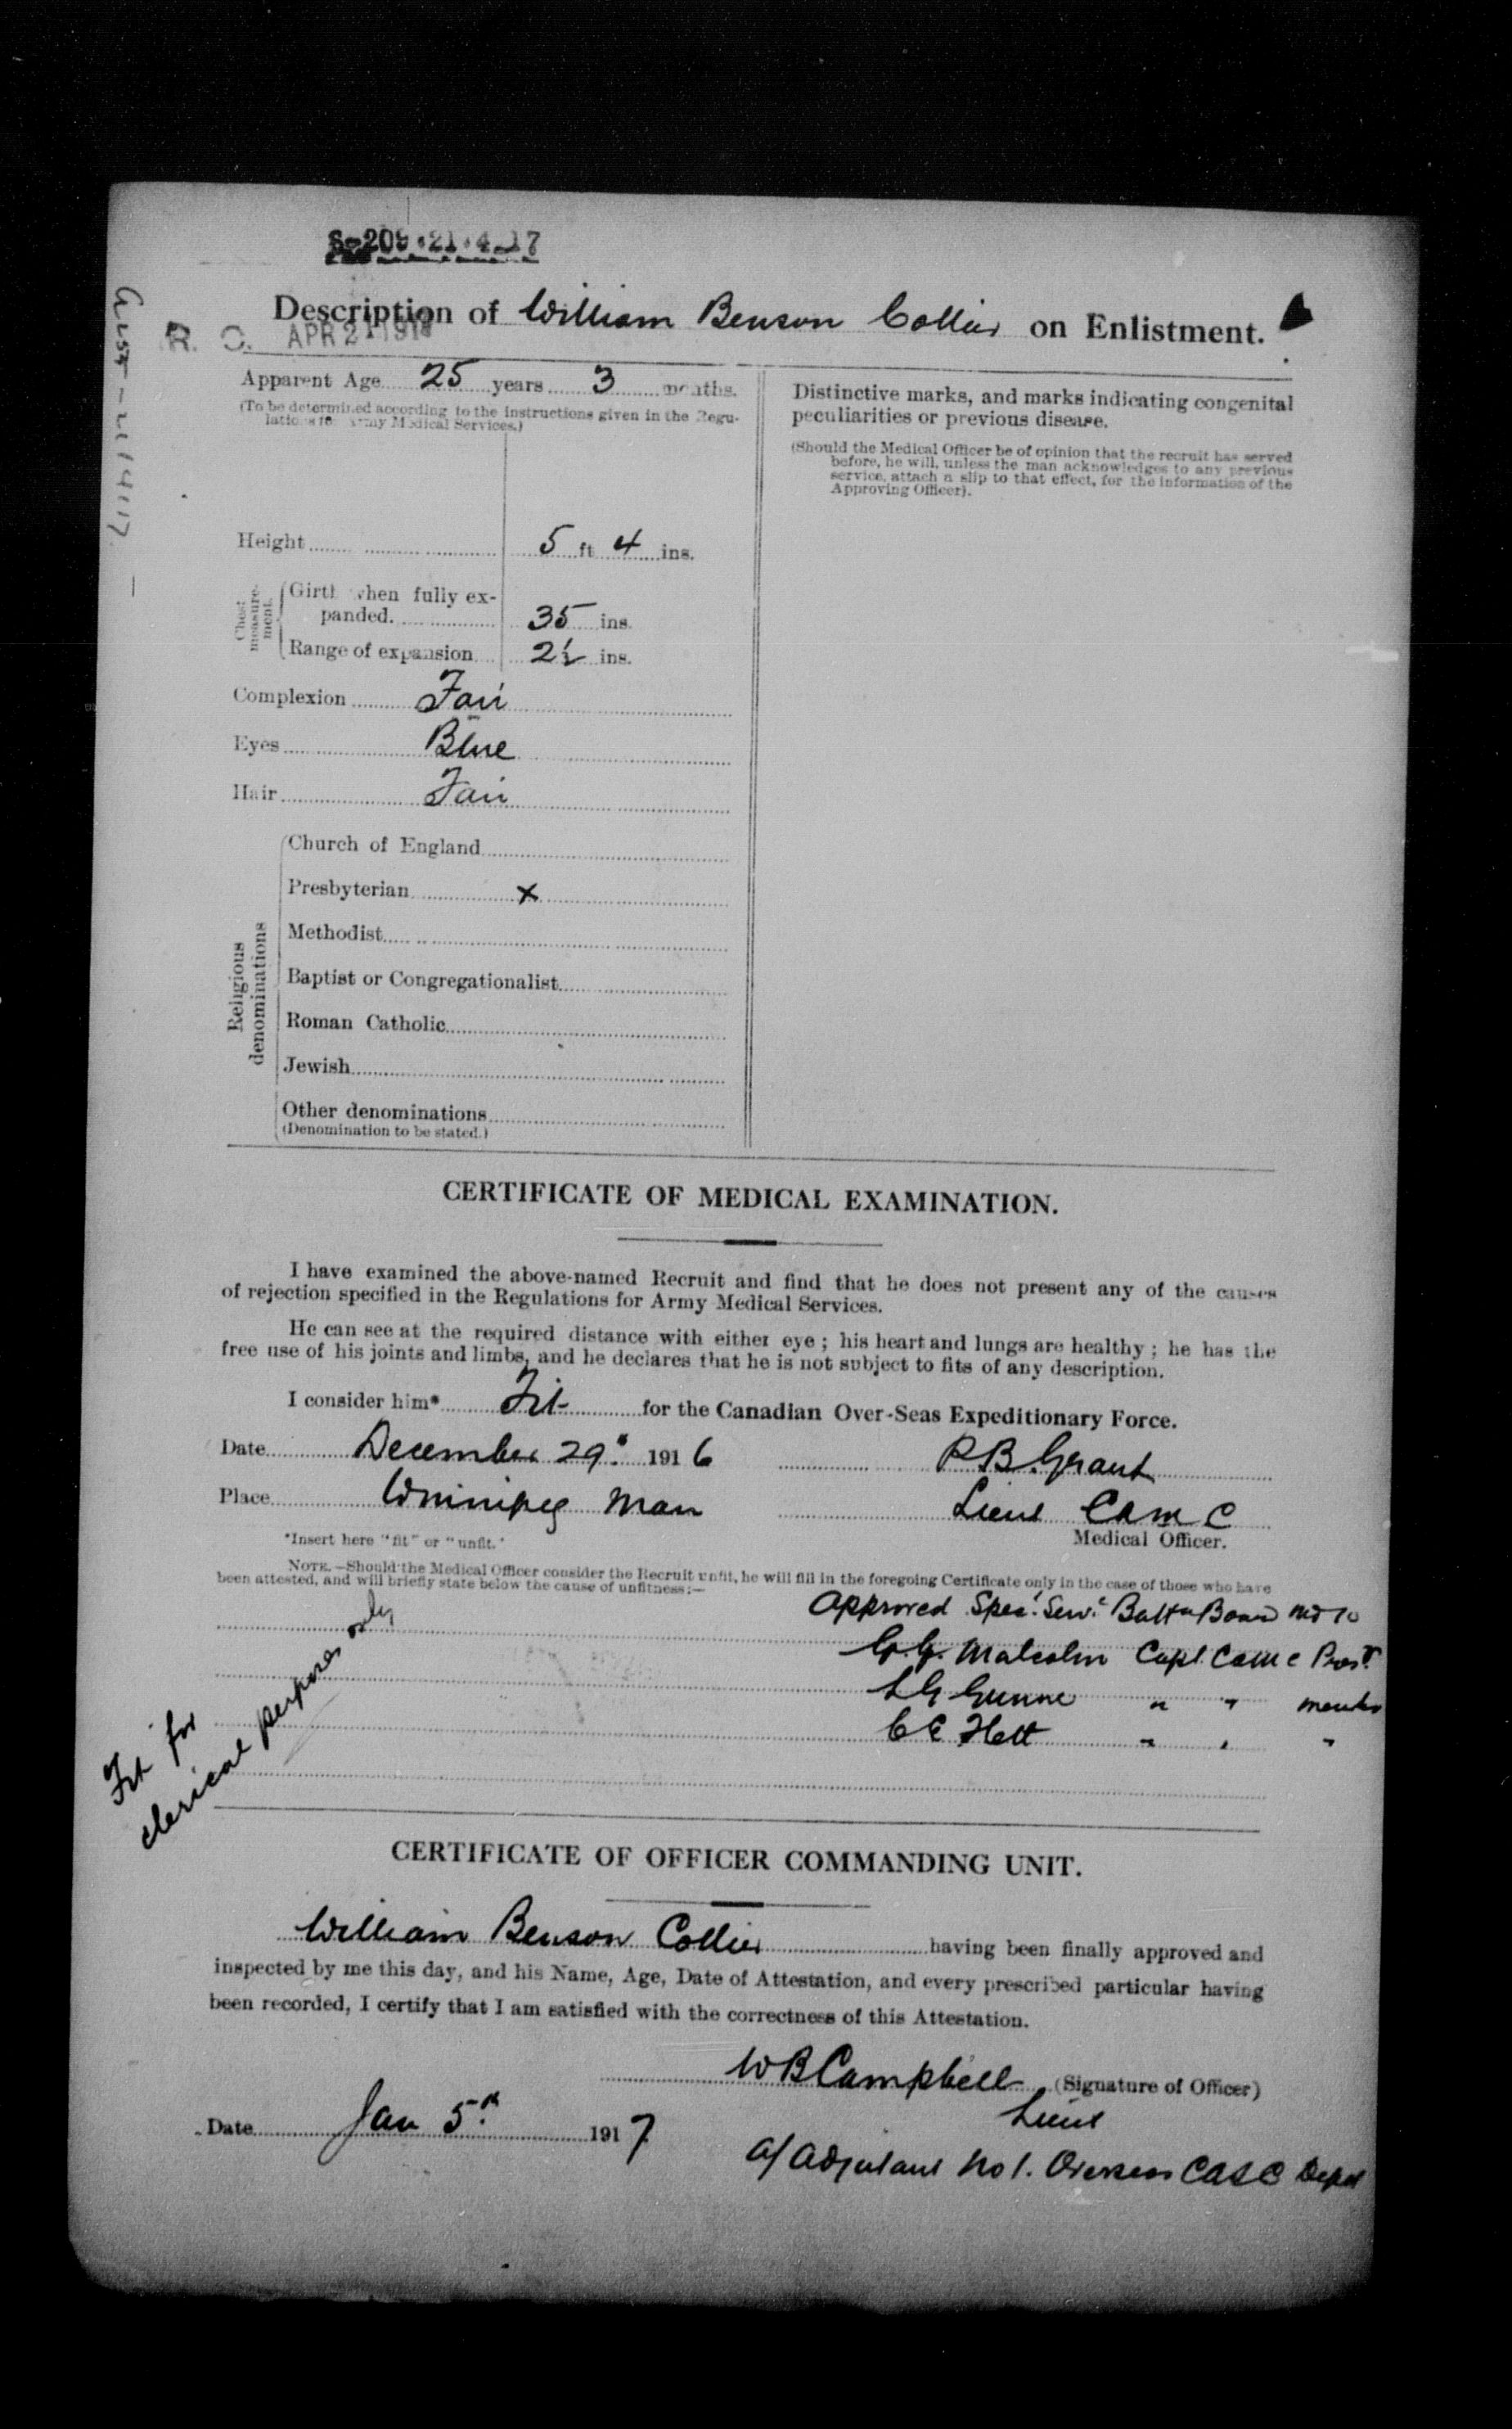 S-209·21·4-17
Description of William Benson Collier on Enlistment.
R. O. APR 21 191
Apparent Age 25 years 3 months.
(To be determined according to the instructions given in the Regulations for Army Medical Services.)
Distinctive marks, and marks indicating congenital
peculiarities or previous disease.
(Should the Medical Officer be of opinion that the recruit has served
before, he will, unless the man acknowledges to any previous
service, attach a slip to that effect, for the information of the
Approving Officer).
Height 5 ft 4 ins.
Chest measurement.
Girth when fully expanded. 35 ins.
Range of expansion 2½ ins.
Complexion Fair
Eyes Blue
Hair Fair
Religious denominations
Church of England
Presbyterian x
Methodist
Baptist or Congregationalist
Roman Catholic
Jewish
Other denominations
(Denomination to be stated.)
CERTIFICATE OF MEDICAL EXAMINATION.
I have examined the above-named Recruit and find that he does not present any of the causes
of rejection specified in the Regulations for Army Medical Services.
He can see at the required distance with either eye ; his heart and lungs are healthy ; he has the
free use of his joints and limbs, and he declares that he is not subject to fits of any description.
I consider him* Fit for the Canadian Over-Seas Expeditionary Force.
Date December 29th 1916 R B Grant
Place Winnipeg Man Lieut CAMC
Medical Officer.
*Insert here "fit" or "unfit."
NOTE.—Should the Medical Officer consider the Recruit unfit, he will fill in the foregoing Certificate only in the case of those who have
been attested, and will briefly state below the cause of unfitness:—
Approved Spec! Serv. Battn Board MD 10
G. G. Malcolm Capt. CAMC Prest
L G Gunne " " member
C E Hett " " "
Fit for
clerical purposes only
CERTIFICATE OF OFFICER COMMANDING UNIT.
William Benson Collier having been finally approved and
inspected by me this day, and his Name, Age, Date of Attestation, and every prescribed particular having
been recorded, I certify that I am satisfied with the correctness of this Attestation.
W B Campbell (Signature of Officer)
Lieut
Date Jan 5th 1917
a/Adjutant No 1. Overseas CASC Depot